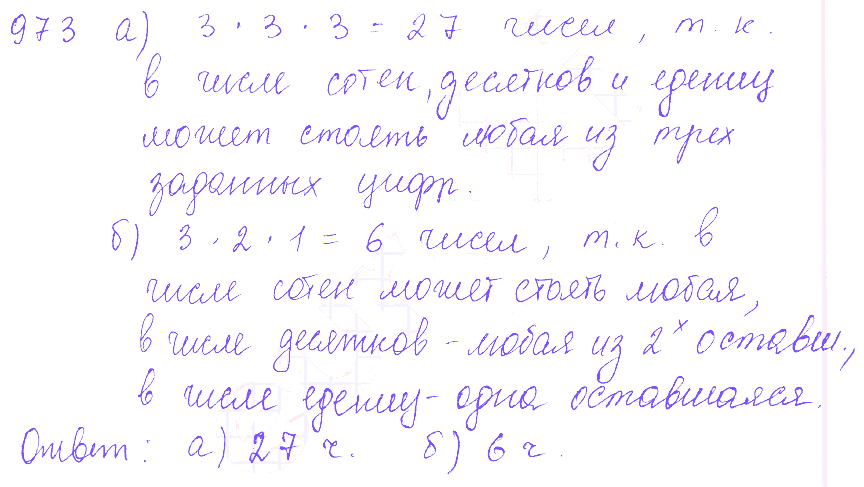 973 а) 3 · 3 · 3 = 27 чисел, т.к.
в числе сотен, десятков и едениц
может стоять любая из трех
заданных цифр.
б) 3 · 2 · 1 = 6 чисел, т.к. в
числе сотен может стоять любая,
в числе десятков - любая из 2х оставш.,
в числе едениц - одна оставшаяся.
Ответ: а) 27 ч. б) 6 ч.